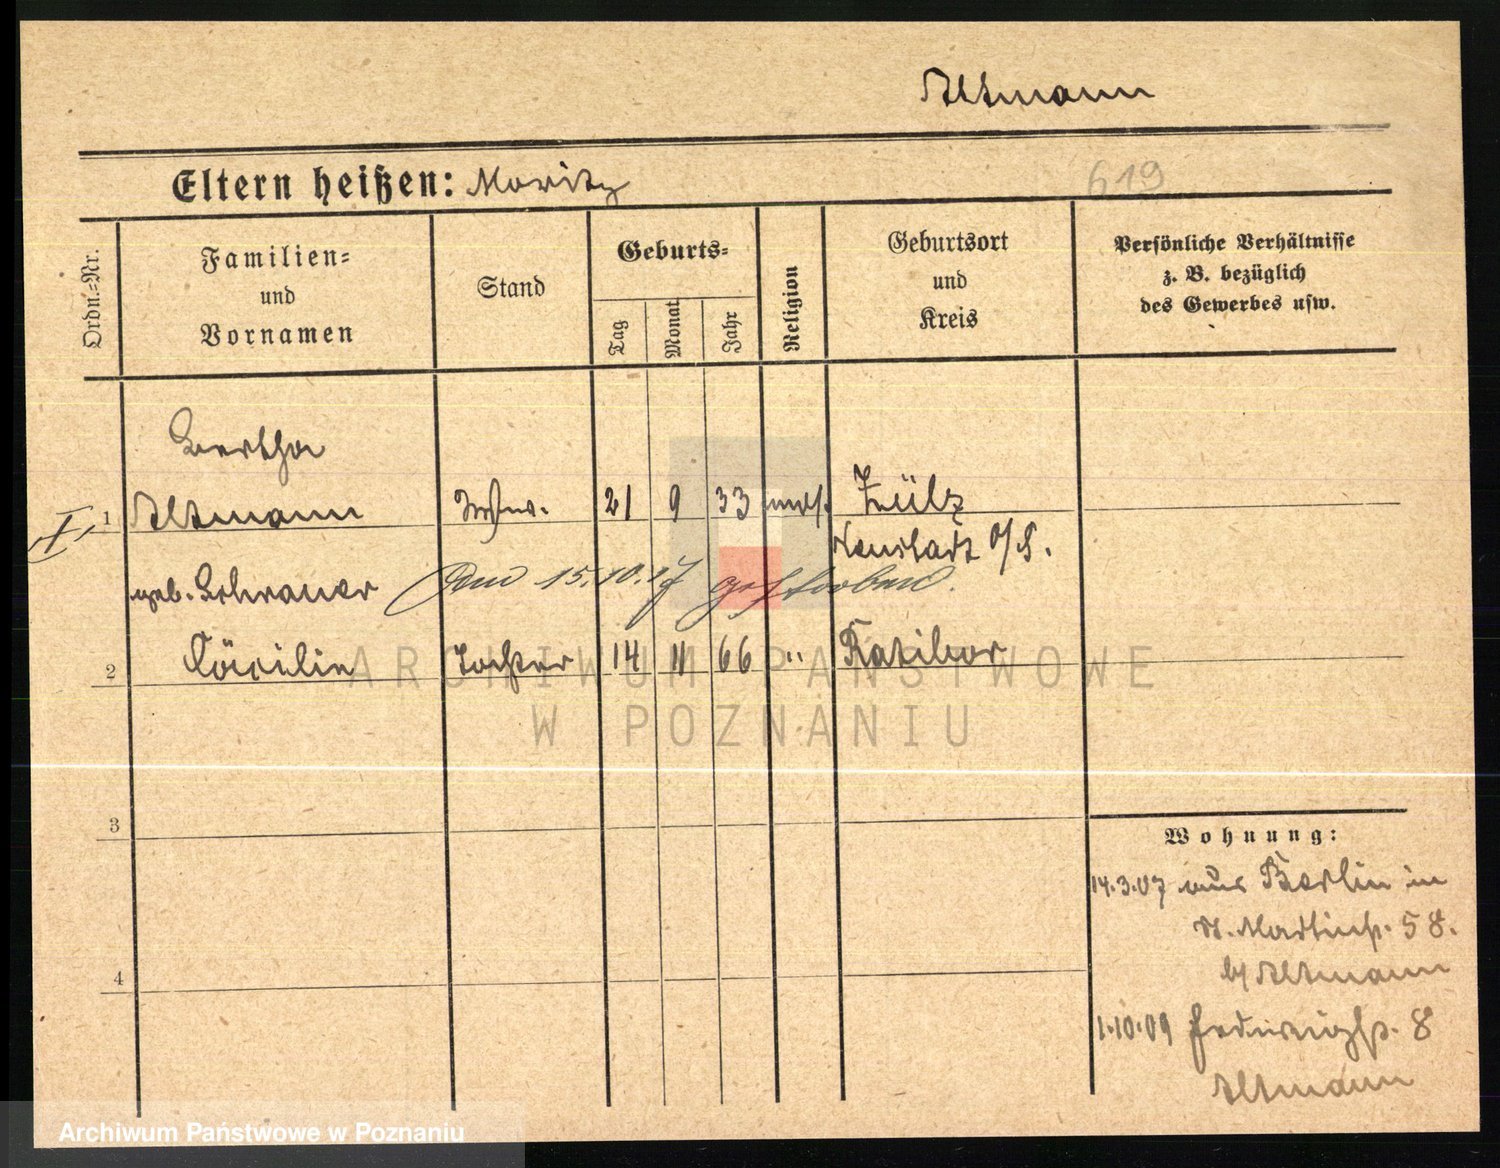 Altmann
Eltern heißen: Moritz
619
Ordn.-Nr.
Familien-
und
Vornamen
Stand
Geburts-
Tag
Monat
Jahr
Religion
Geburtsort
und
Kreis
Persönliche Verhältnisse
z. B. bezüglich
des Gewerbes usw.
Bertha
1 Altmann Wwe. 21 9 33 mos. Zülz
Neustadt O/S.
geb. Schrauer Am 15.10.17 gestorben.
2 Cäcilie Tochter 14 11 66 " Ratibor
3
4
Wohnung:
14.3.07 aus Berlin in
St. Martinstr. 58.
b/ Altmann
1.10.09 Hedwigstr. 8
Altmann
ARCHIWUM PAŃSTWOWE
W POZNANIU
Archiwum Państwowe w Poznaniu